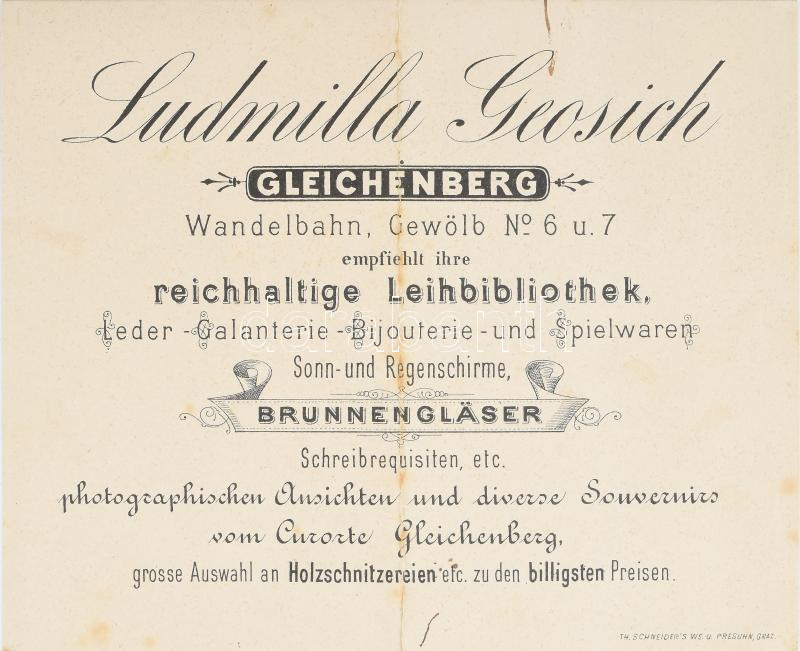 Ludmilla Geosich
GLEICHENBERG
Wandelbahn, Gewölb No 6 u. 7
empfiehlt ihre
reichhaltige Leihbibliothek,
Leder-Galanterie-Bijouterie-und Spielwaren
Sonn-und Regenschirme,
BRUNNENGLÄSER
Schreibrequisiten, etc.
photographischen Ansichten und diverse Souvernirs
vom Curorte Gleichenberg,
grosse Auswahl an Holzschnitzereien etc. zu den billigsten Preisen.
TH. SCHNEIDER'S WS. U. PRESUHN, GRAZ.